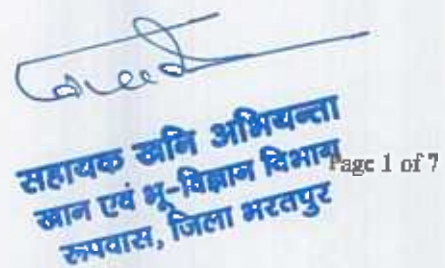 सहायक खनि अभियन्ता
खान एवं भू-विज्ञान विभाग
रूपवास, जिला भरतपुर
Page 1 of 7